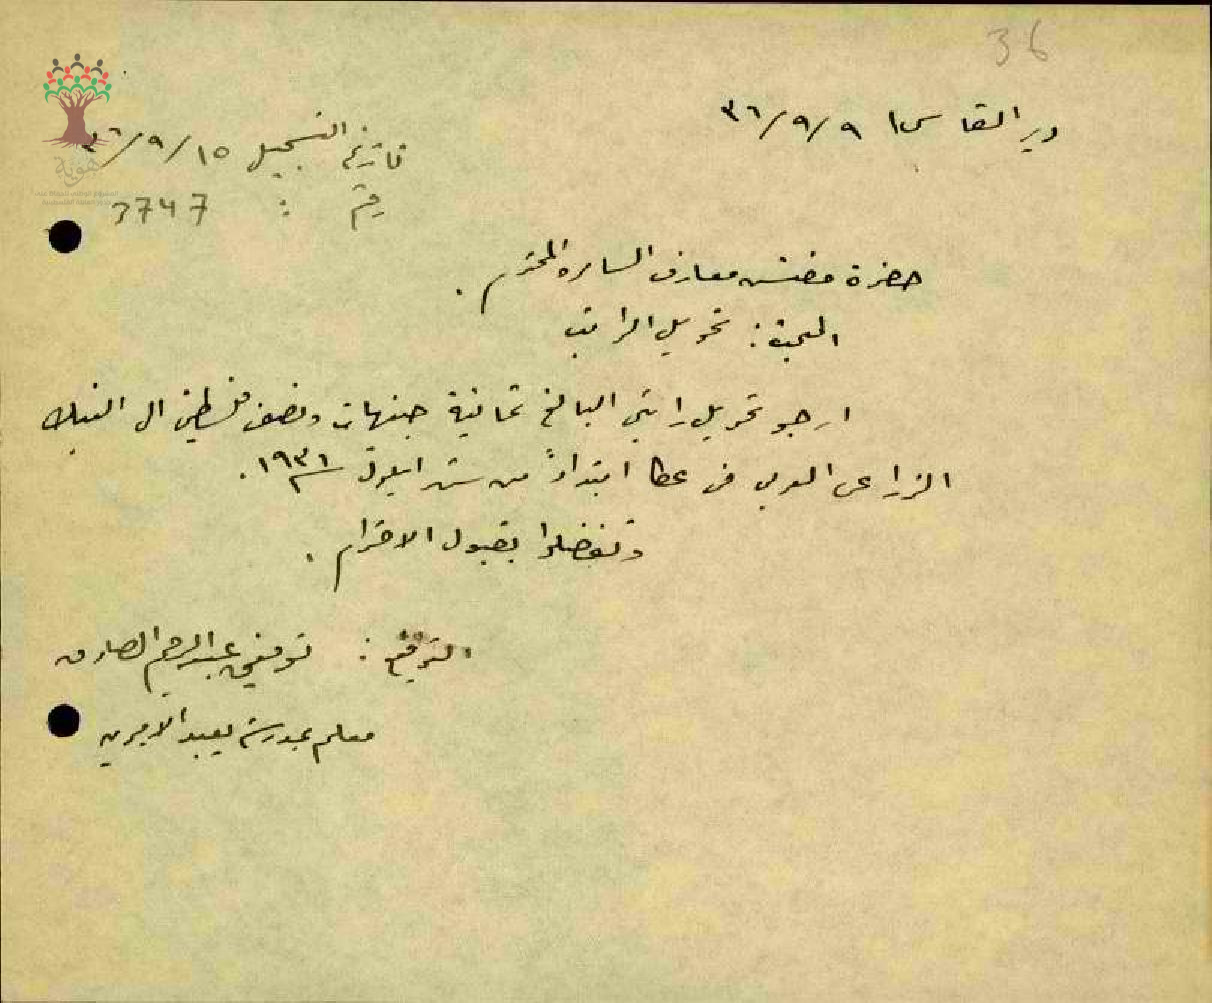 36
دير القاسي ٩/٩/٣٦
تاريخ التسجيل ١٥/٩/٣٦
رقم : 3747
حضرة مفتش معارف السامره المحترم .
البحث : تحويل الراتب
ارجو تحويل راتبي البالغ ثمانية جنيهات ونصف فلسطيني الى البنك
الزراعي العربي في عكا ابتداءً من شهر ايلول سنة ١٩٣٦ .
وتفضلوا بقبول الاحترام .
التوقيع : توفيق عبد الرحيم الصادق
معلم بمدرسة يعبد الاميرية
هوية